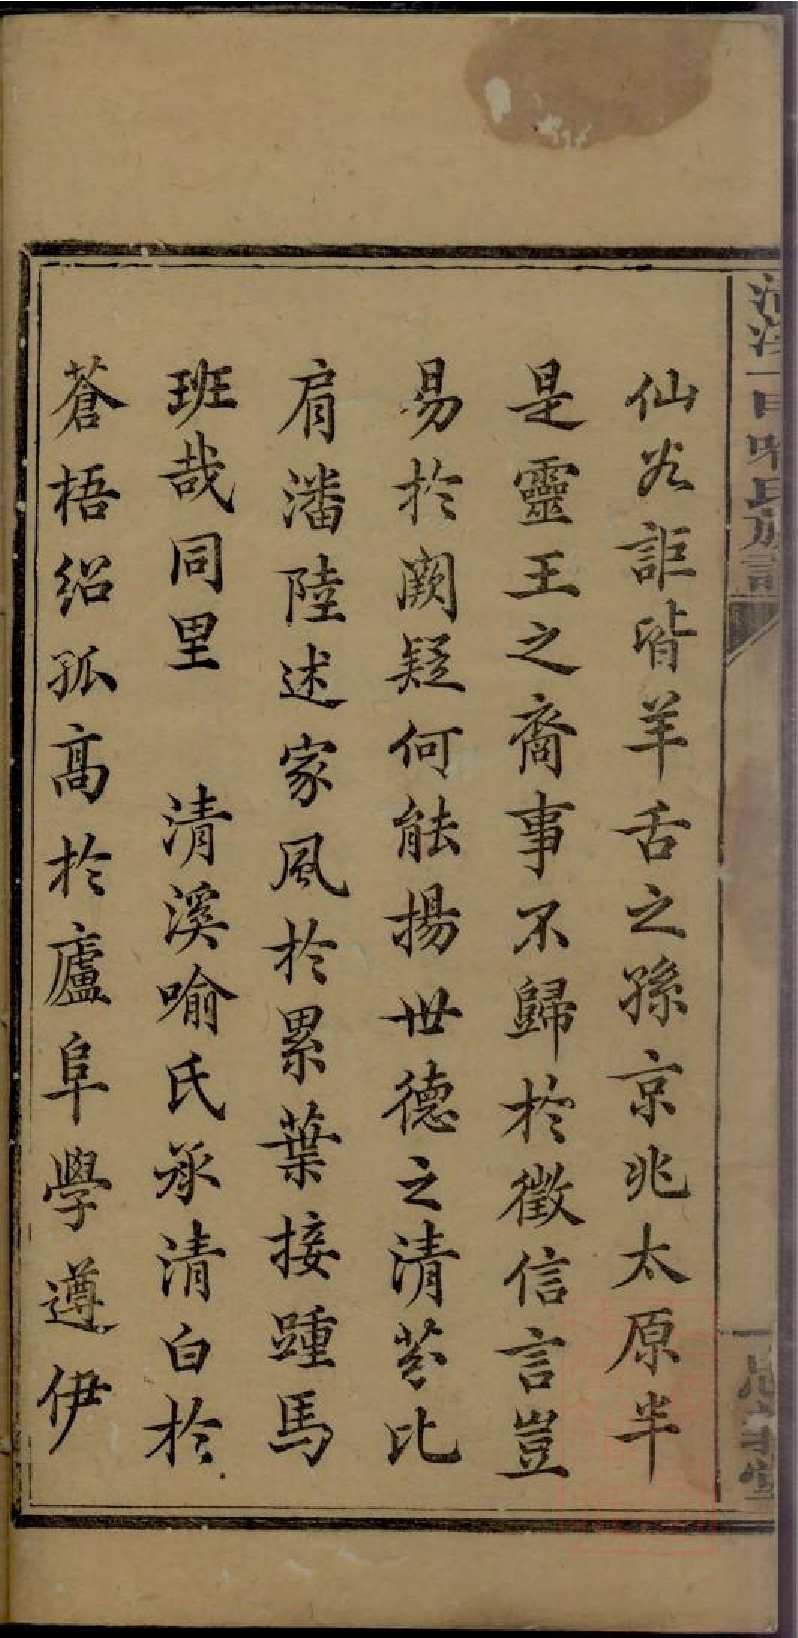 仙谷詎皆羊舌之孫京兆太原半
是靈王之裔事不歸於徵信言豈
易於闕疑何能揚世德之清芬比
肩潘陸述家風於累葉接踵馬
班哉同里　清溪喻氏承清白於
蒼梧紹孤高於廬阜學遵伊